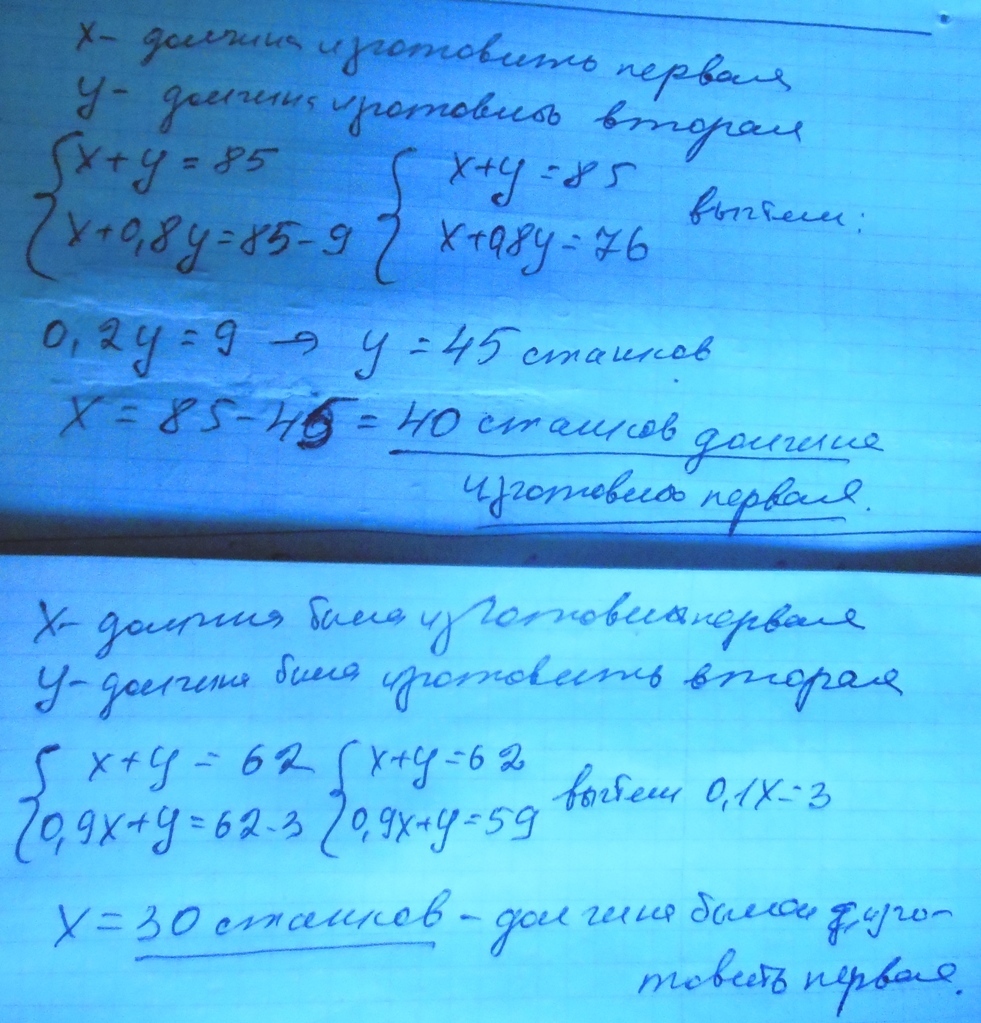 x- должна изготовить первая
y- должна изготовить вторая
{x+y=85 {x+y=85 вычтем:
x+0,8y=85-9 x+0,8y=76
0,2y=9 → y=45 станков
x=85-45=40 станков должна
изготовить первая.
x- должна была изготовить первая
y- должна была изготовить вторая
{x+y=62 {x+y=62 вычтем 0,1x=3
0,9x+y=62-3 0,9x+y=59
x=30 станков - должна была изго-
товить первая.